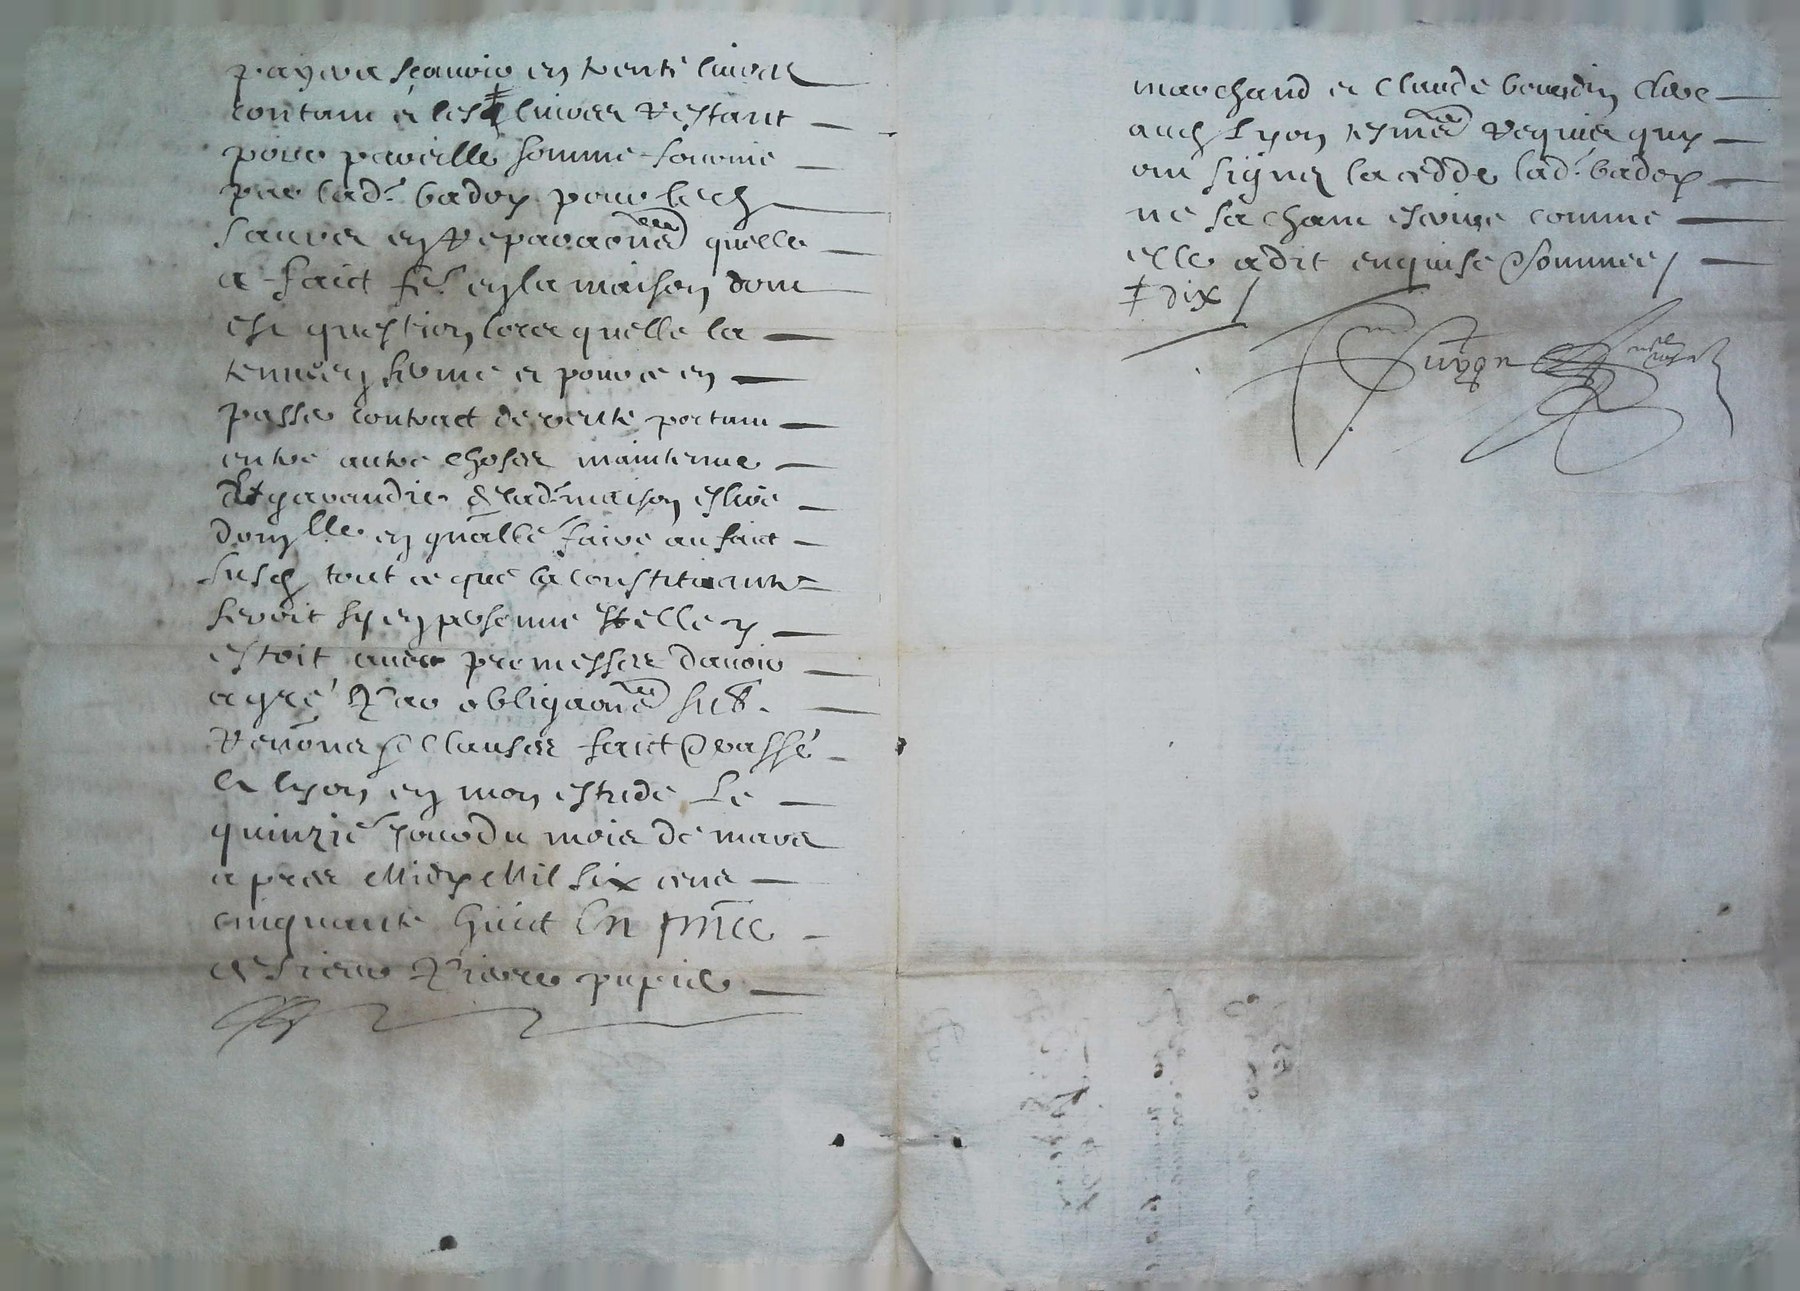 payera scavoir en trente livres
contant & les ‡ livres restant
pour pareille somme fournie
par lad. badoy pour led
en reparaõns quelle
a faict fe. en la maison dont
est question lors quelle la
tenue en ferme et pour ce en
passer contract de vente portant
entre autre choses maintenue
& garandie de lad. maison eslire
domlle en qualité faire au faict
susd tout ce que la constituante
feroit sy en persenne elle y
estoit avec promesses davoir
a gré par obligaõn sub.
renõns & clauses faict & passé
a lyon en mon estude Le
quinzie jour du mois de mars
apres Midy Mil six cens
cinquante huict En pñce
de sieur Pierre pupier
marchand et Claude bourdin clerc
aud Lyon tesmoins requis quy
ont signé la cedde lad. badoy
ne sachant escrire comme
elle a dit enquise & sommee /
‡ dix /